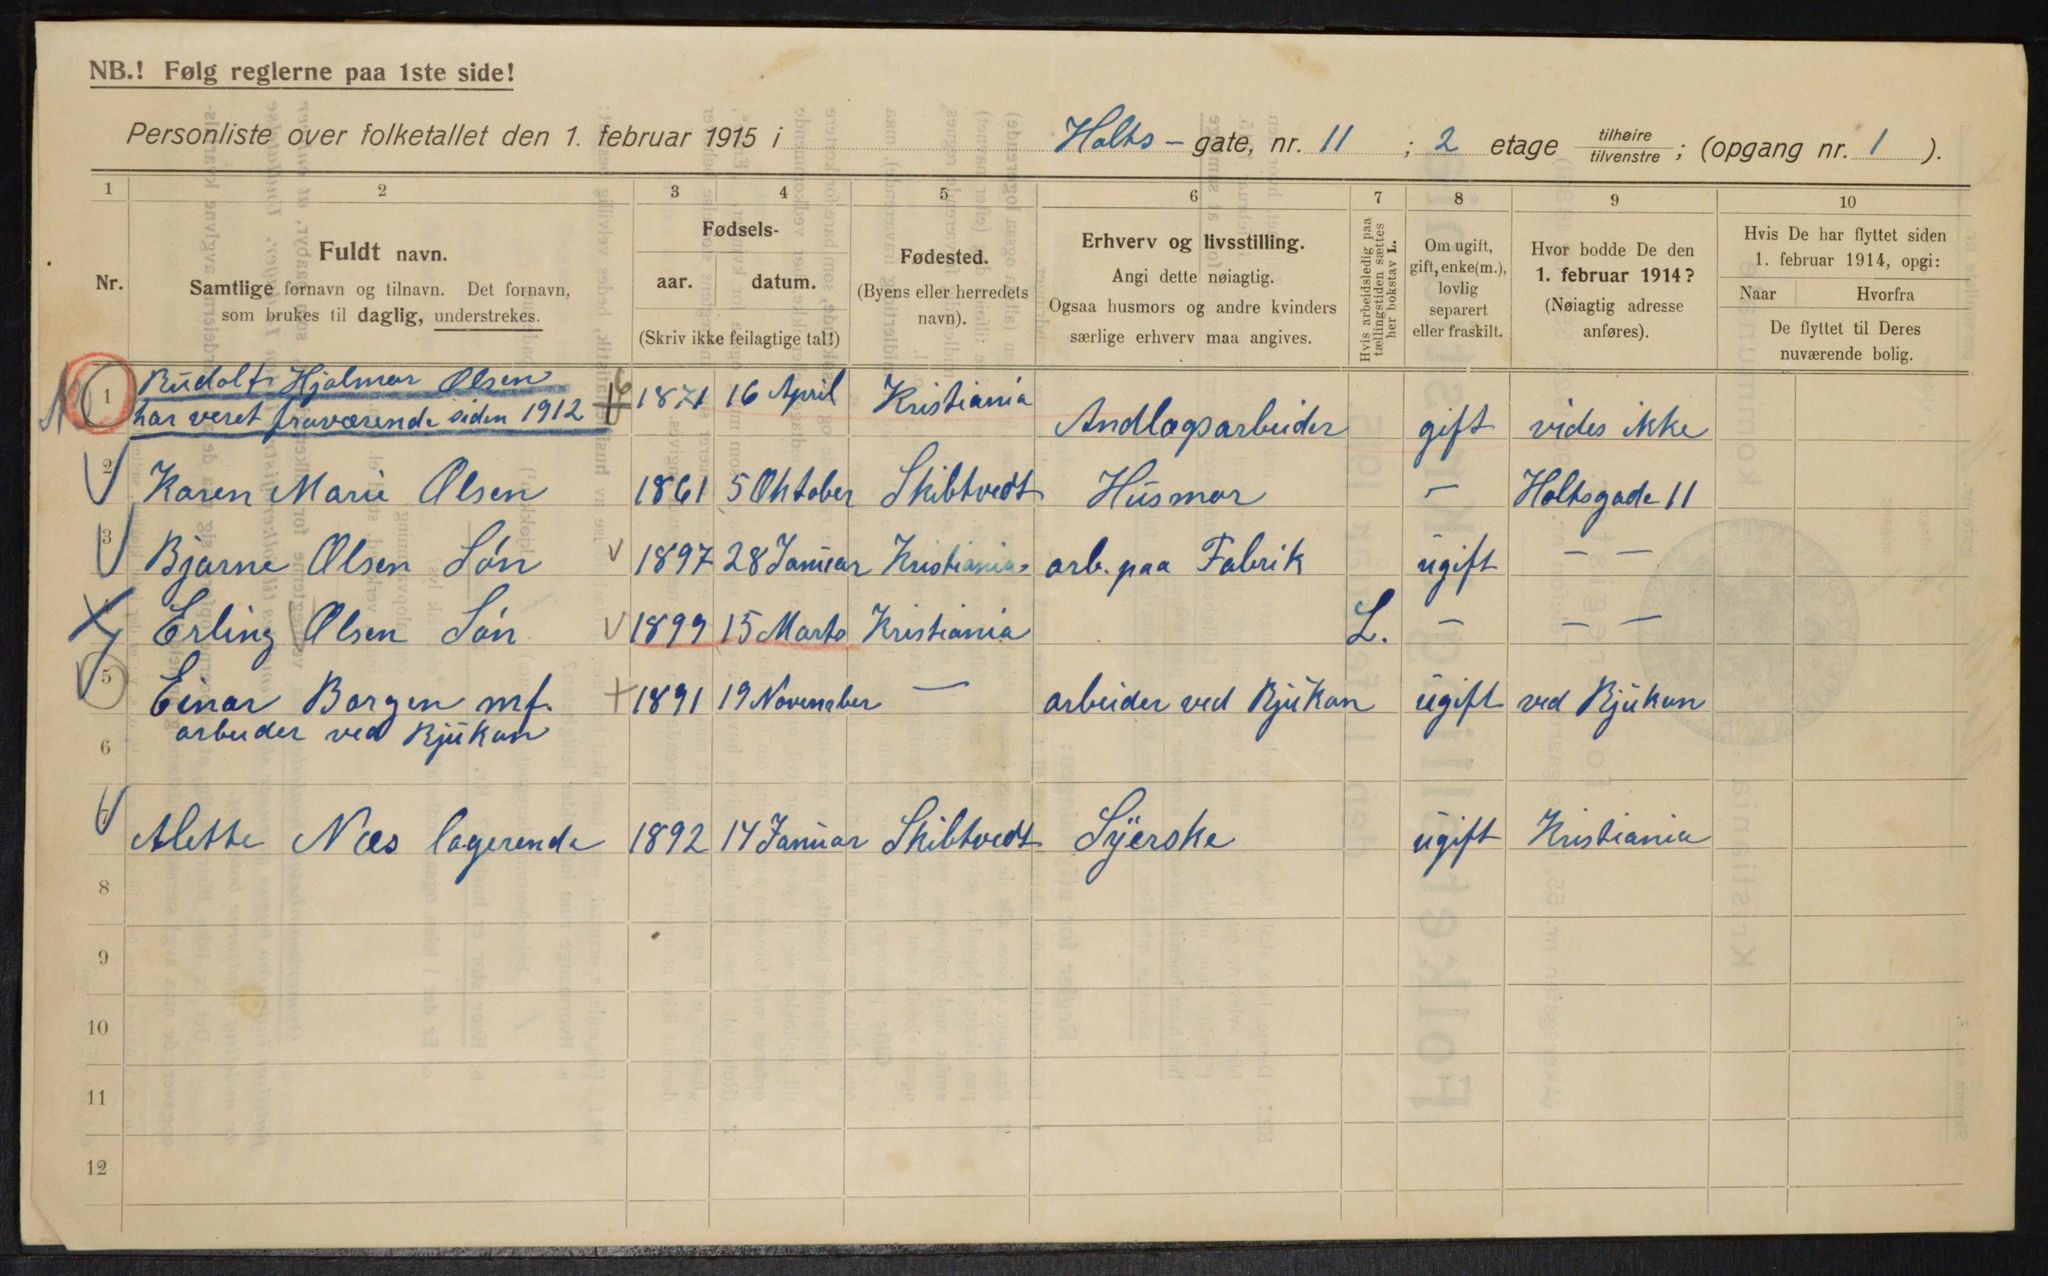 NB.! Følg reglerne paa 1ste side!
Personliste over folketallet den 1. februar 1915 i Holts - gate, nr. 11 ; 2 etage tilhøire / tilvenstre ; (opgang nr. 1 ).
1 2 3 4 5 6 7 8 9 10
Nr.
Fuldt navn.
Samtlige fornavn og tilnavn. Det fornavn,
som brukes til daglig, understrekes.
Fødsels-
aar. datum.
(Skriv ikke feilagtige tal!)
Fødested.
(Byens eller herredets
navn).
Erhverv og livsstilling.
Angi dette nøiagtig.
Ogsaa husmors og andre kvinders
særlige erhverv maa angives.
Hvis arbeidsledig paa
tællingstiden sættes
her bokstav L.
Om ugift,
gift, enke(m.),
lovlig
separert
eller fraskilt.
Hvor bodde De den
1. februar 1914?
(Nøiagtig adresse
anføres).
Hvis De har flyttet siden
1. februar 1914, opgi:
Naar Hvorfra
De flyttet til Deres
nuværende bolig.
1 Rudolf Hjalmar Olsen 1871 16 April Kristiania
har veret fraværende siden 1912 Andlægsarbeider gift vides ikke
2 Karen Marie Olsen 1861 5 Oktober Skibtvedt Husmor — Holtsgade 11
3 Bjarne Olsen Søn 1897 28 Januar Kristiania arb. paa Fabrik ugift — —
Erling Olsen Søn 1899 15 Marts Kristiania L. — — —
5 Einar Borgen mf. 1891 19 November — arbeider ved Rjukan ugift ved Rjukan
arbeider ved Rjukan
6
Alette Næs logerende 1892 14 Januar Skibtvedt Syerske ugift Kristiania
8
9
10
11
12